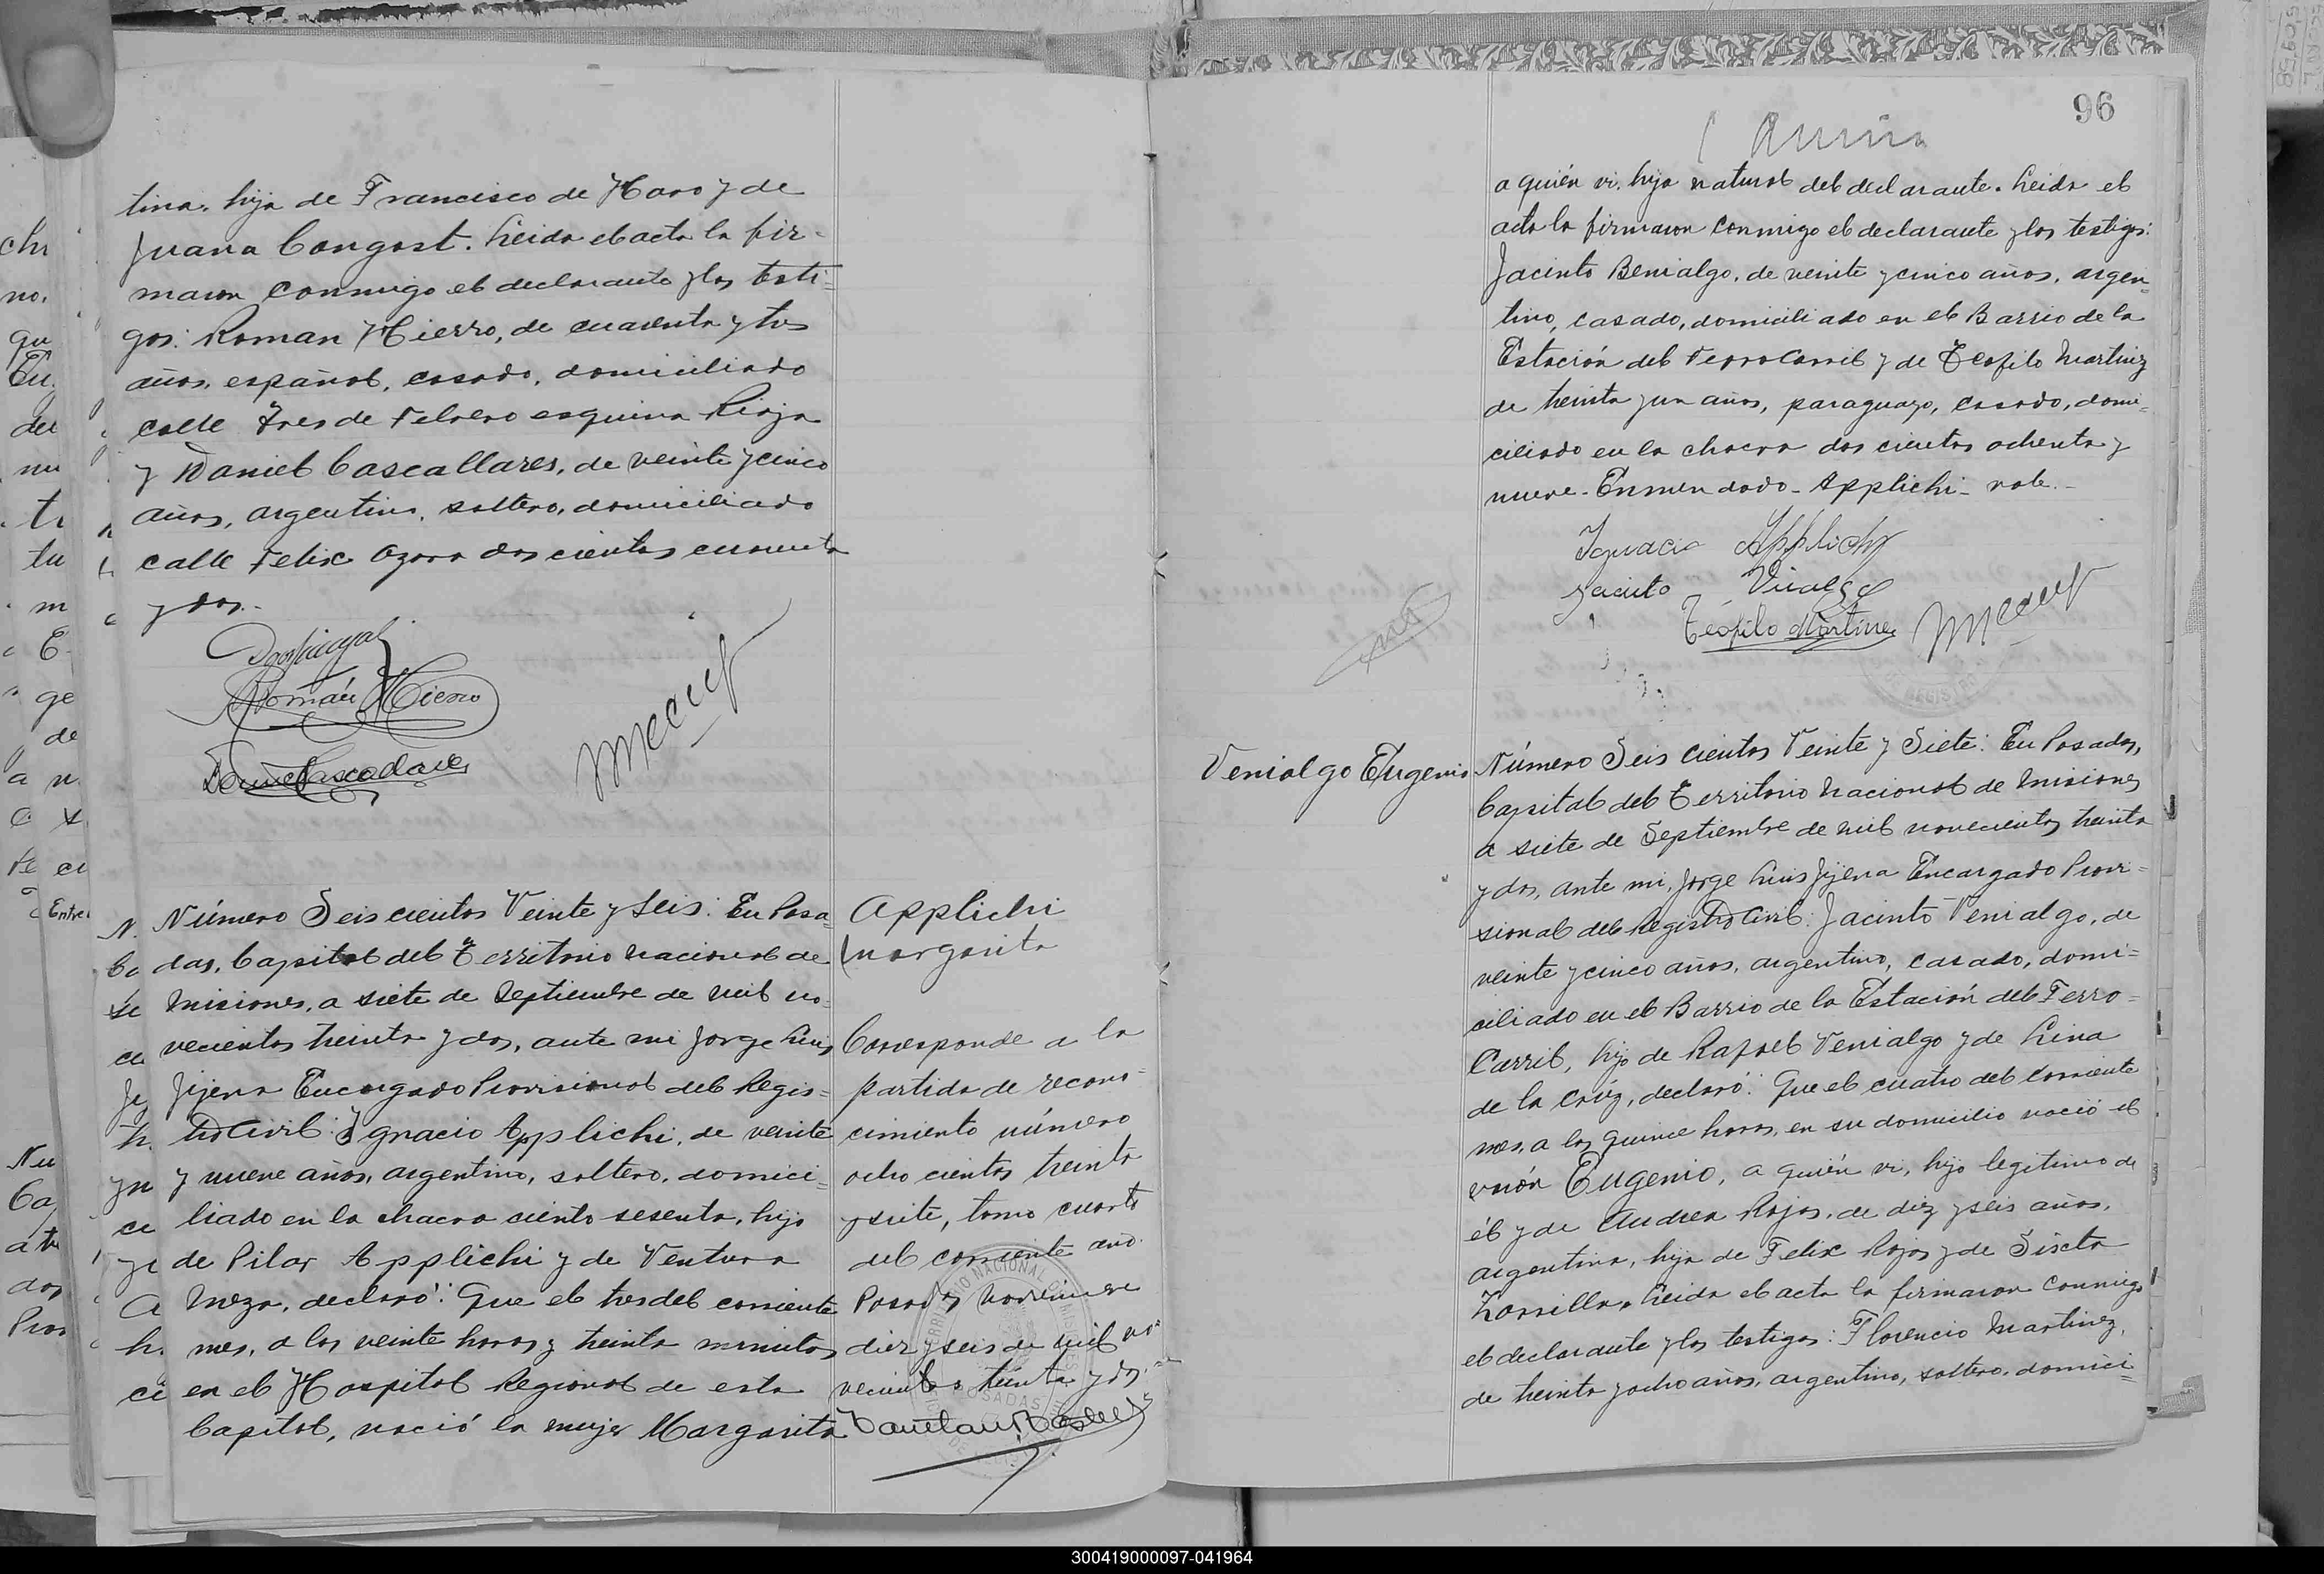 tina, hija de Francisco de Haro y de
Juana Congost. Leida el acta la fir-
maron conmigo el declarante y los testi-
gos: Roman Hierro, de cuarenta y tres
años, español, casado, domiciliado
calle Tres de Febrero esquina Rioja
y Daniel Cascallares, de veinte y cinco
años, argentino, soltero, domiciliado
calle Felix Azara dos cientos cuarenta
y dos.-
Román Hierro
Daniel Cascallares
Número Seis cientos Veinte y Seis: En Posa=
das, Capital del Territorio Nacional de
Misiones, a siete de Septiembre de mil no=
vecientos treinta y dos, ante mi Jorge Luis
Jijena Encargado Provisional del Regis=
tro Civil: Ignacio Applichi, de veinte
y nueve años, argentino, soltero, domici=
liado en la chacra ciento sesenta, hijo
de Pilar Applichi y de Ventura
Meza, declaró: Que el tres del corriente
mes, a las veinte horas y treinta minutos
en el Hospital Regional de esta
Capital, nació la mujer Margarita
Applichi
Margarita
Corresponde a la
partida de recono-
cimiento número
ocho cientos treinta
y siete, tomo cuarto
del corriente año.
Posadas Noviembre
diez y seis de mil no=
vecientos treinta y dos.
96
a quién vi, hija natural del declarante. Leida el
acta la firmaron conmigo el declarante y los testigos:
Jacinto Benialgo, de veinte y cinco años, argen=
tino, casado, domiciliado en el Barrio de la
Estación del Ferro Carril y de Teofilo Martinez
de treinta y un años, paraguayo, casado, domi=
ciliado en la chacra dos cientos ochenta y
nueve - Enmendado - Applichi - vale.-
Ignacio Applichi
Jacinto Vialgo
Teofilo Martinez
Venialgo Eugenio
Número Seis cientos Veinte y Siete: En Posadas,
Capital del Territorio Nacional de Misiones
a siete de Septiembre de mil novecientos treinta
y dos, ante mi, Jorge Luis Jijena Encargado Provi=
sional del Registro Civil: Jacinto Venialgo, de
veinte y cinco años, argentino, casado, domi=
ciliado en el Barrio de la Estación del Ferro=
Carril, hijo de Rafael Venialgo y de Lina
de la Cruz, declaró: Que el cuatro del corriente
mes, a las quince horas, en su domicilio nació el
varón Eugenio, a quién vi, hijo legitimo de
él y de Andrea Rojas, de diez y seis años,
argentina, hija de Felix Rojas y de Sixta
Zorrilla. Leida el acta la firmaron conmigo
el declarante y los testigos: Florencio Martinez,
de treinta y ocho años, argentino, soltero, domici=
300419000097-041964